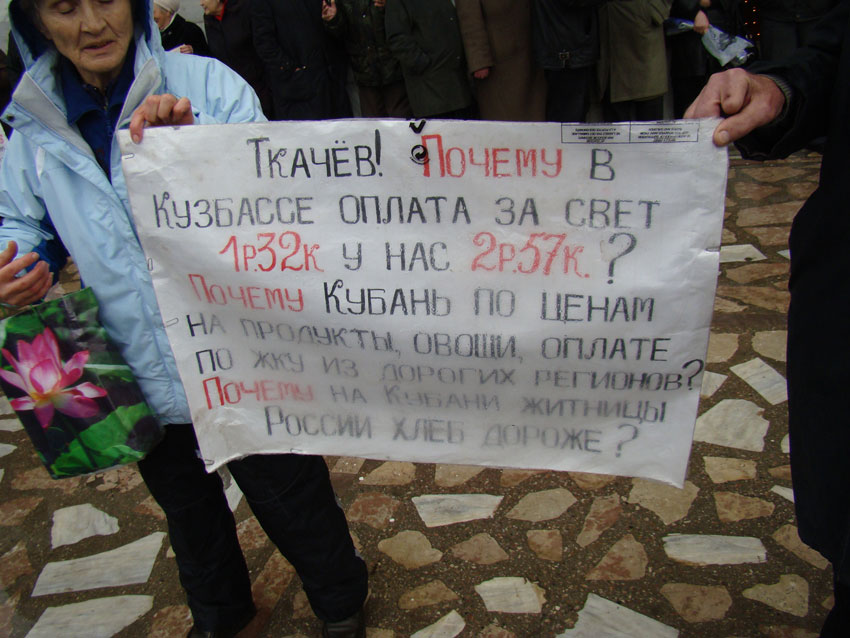 Ткачёв! Почему в
Кузбассе оплата за свет
1р.32к у нас 2р.57к. ?
Почему Кубань по ценам
на продукты, овощи, оплате
по жку из дорогих регионов?
Почему на Кубани житницы
России хлеб дороже?